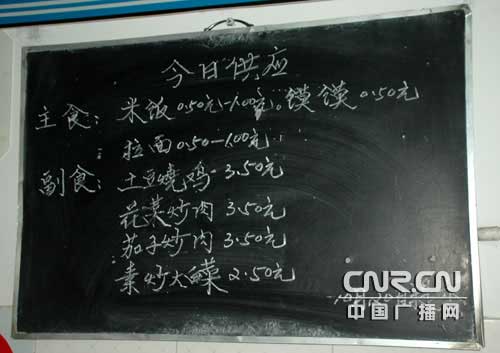 今日供应
主食：米饭0.50元-1.00元。馍馍0.50元
拉面0.50-1.00元
副食：土豆烧鸡 3.50元
花菜炒肉 3.50元
茄子炒肉 3.50元
素炒大 2.50元
CNR.CN
中国广播网